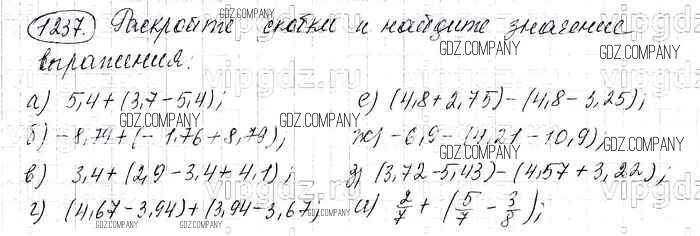 1237. Раскройте скобки и найдите значение
выражения:
а) 5,4+(3,7-5,4);
е) (4,8+2,75)-(4,8-3,25);
б) -8,79+(-1,76+8,79);
ж) -6,9-(4,21-10,9);
в) 3,4+(2,9-3,4+4,1);
з) (3,72-5,43)-(4,57+3,22);
г) (4,67-3,94)+(3,94-3,67);
и) 2/7+(5/7-3/8);
GDZ.COMPANY
vipgdz.ru